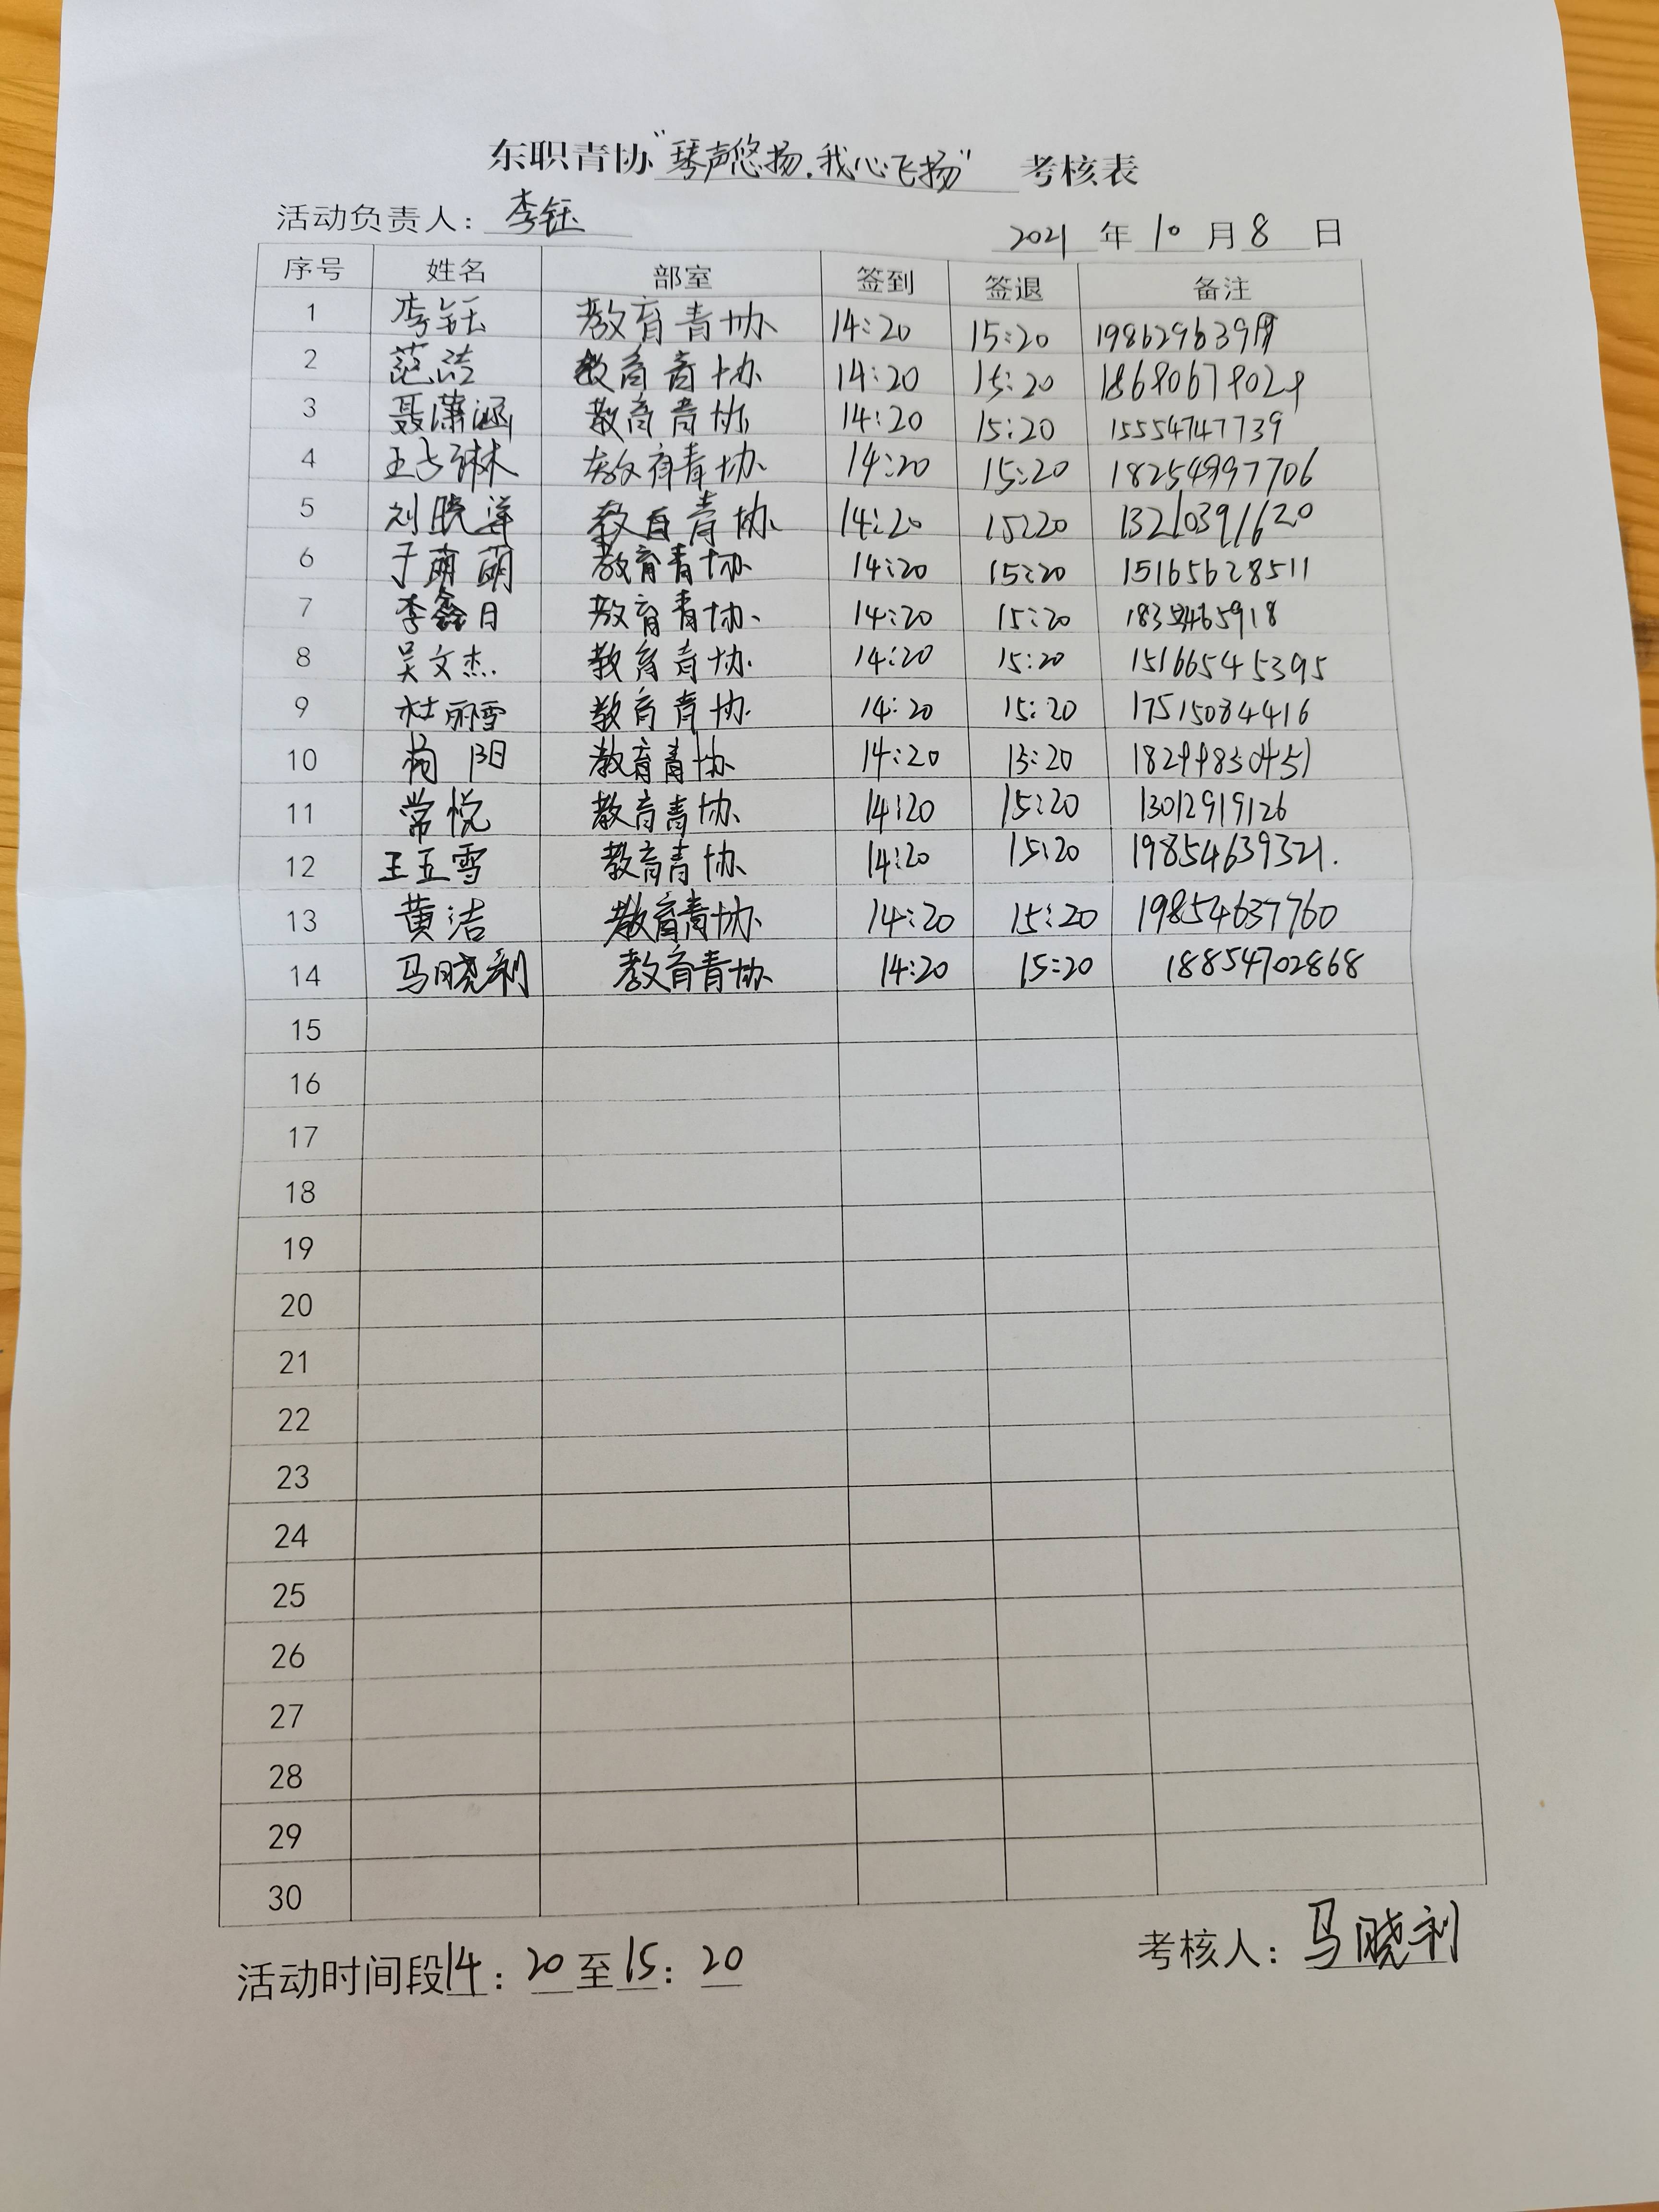 东职青协“琴声悠扬.我心飞扬” 考核表
活动负责人：李钰 2021 年 10 月 8 日
序号 姓名 部室 签到 签退 备注
1 李钰 教育青协 14:20 15:20
2 范洁 教育青协 14:20 15:20
3 聂潇涵 教育青协 14:20 15:20 15554747739
4 王占琳 教育青协 14:20 15:20 18254997706
5 刘晓萍 教育青协 14:20 15:20 13210391620
6 于萌萌 教育青协 14:20 15:20 15165628511
7 李鑫月 教育青协 14:20 15:20
8 吴文杰 教育青协 14:20 15:20 15166545395
9 杜丽雪 教育青协 14:20 15:20 17515084416
10 杨阳 教育青协 14:20 15:20
11 常悦 教育青协 14:20 15:20 13012919126
12 王五雪 教育青协 14:20 15:20 19854639321.
13 黄洁 教育青协 14:20 15:20 19854637760
14 马晓利 教育青协 14:20 15:20 18854702868
15
16
17
18
19
20
21
22
23
24
25
26
27
28
29
30
活动时间段14：20至15：20 考核人：马晓利